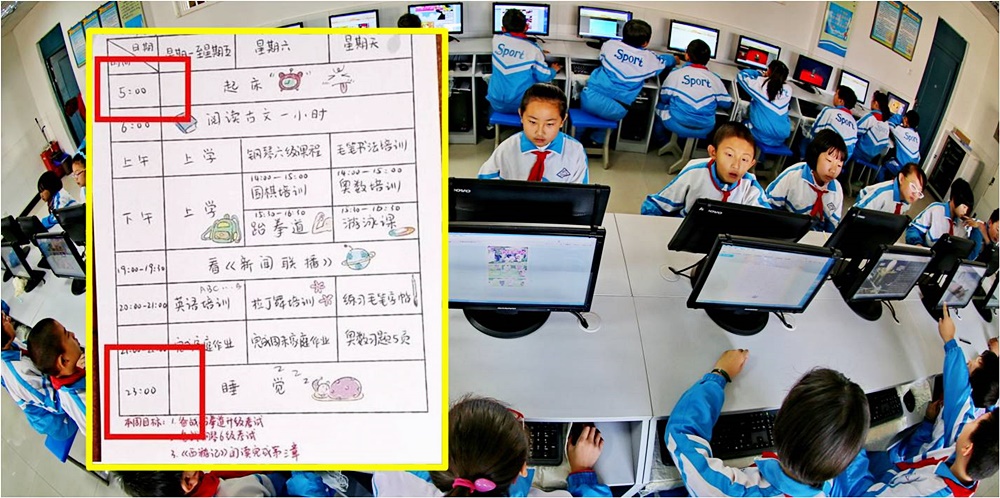 日期
时间
星期一至星期五 星期六 星期天
5:00 起床
6:00 阅读古文一小时
上午 上学 钢琴六级课程 毛笔书法培训
14:00-15:00 14:00-15:00
围棋培训 奥数培训
下午 上学
15:30-16:30 15:30-16:30
跆拳道 游泳课
19:00-19:30 看《新闻联播》
ABC
20:00-21:00 英语培训 拉丁舞培训 练习毛笔字帖
完成家庭作业 完成周末家庭作业 奥数习题5页
23:00 睡觉
本周目标: 1. 跆拳道升级考试
6级考试
3.《西游记》阅读完成第三章
Sport
Sport
Sport
Sport
Sport
Sport
lenovo